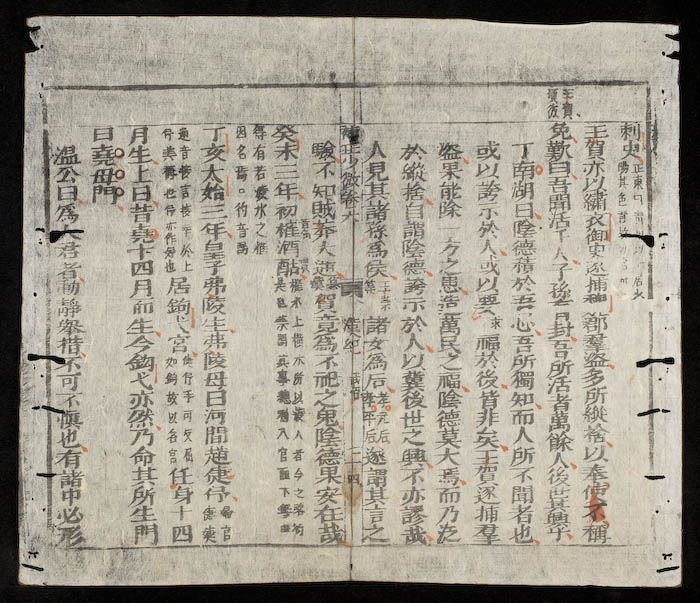 刺史
王賀亦以繡衣御史逐捕魏郡羣盜多所縱捨以奉使不稱
免歎曰吾聞活千人子孫有封吾所活者萬餘人後世其興乎
王賀
丁南湖曰陰德積於吾心吾所獨知而人所不聞者也
或以誇示於人或以要求福於後皆非矣王賀逐捕羣
盜果能除一夕之患造萬民之福陰德莫大焉而乃泛
於縱捨自謂陰德誇示於人以冀後世之興不亦謬哉
人見其諸孫為侯諸女為后遂謂其言之
少微卷六 漢紀 武帝 二四
驗不知賊莽大逆賀竟為不祀之鬼陰德果安在哉
癸未三年初榷酒酤
丁亥太始三年皇子弗陵生弗陵母曰河間趙倢伃
居鉤弋宮任身十四
月生上曰昔堯十四月而生今鉤弋亦然乃命其所生門
曰堯母門
溫公曰為人君者動靜舉措不可不慎也有諸中必形